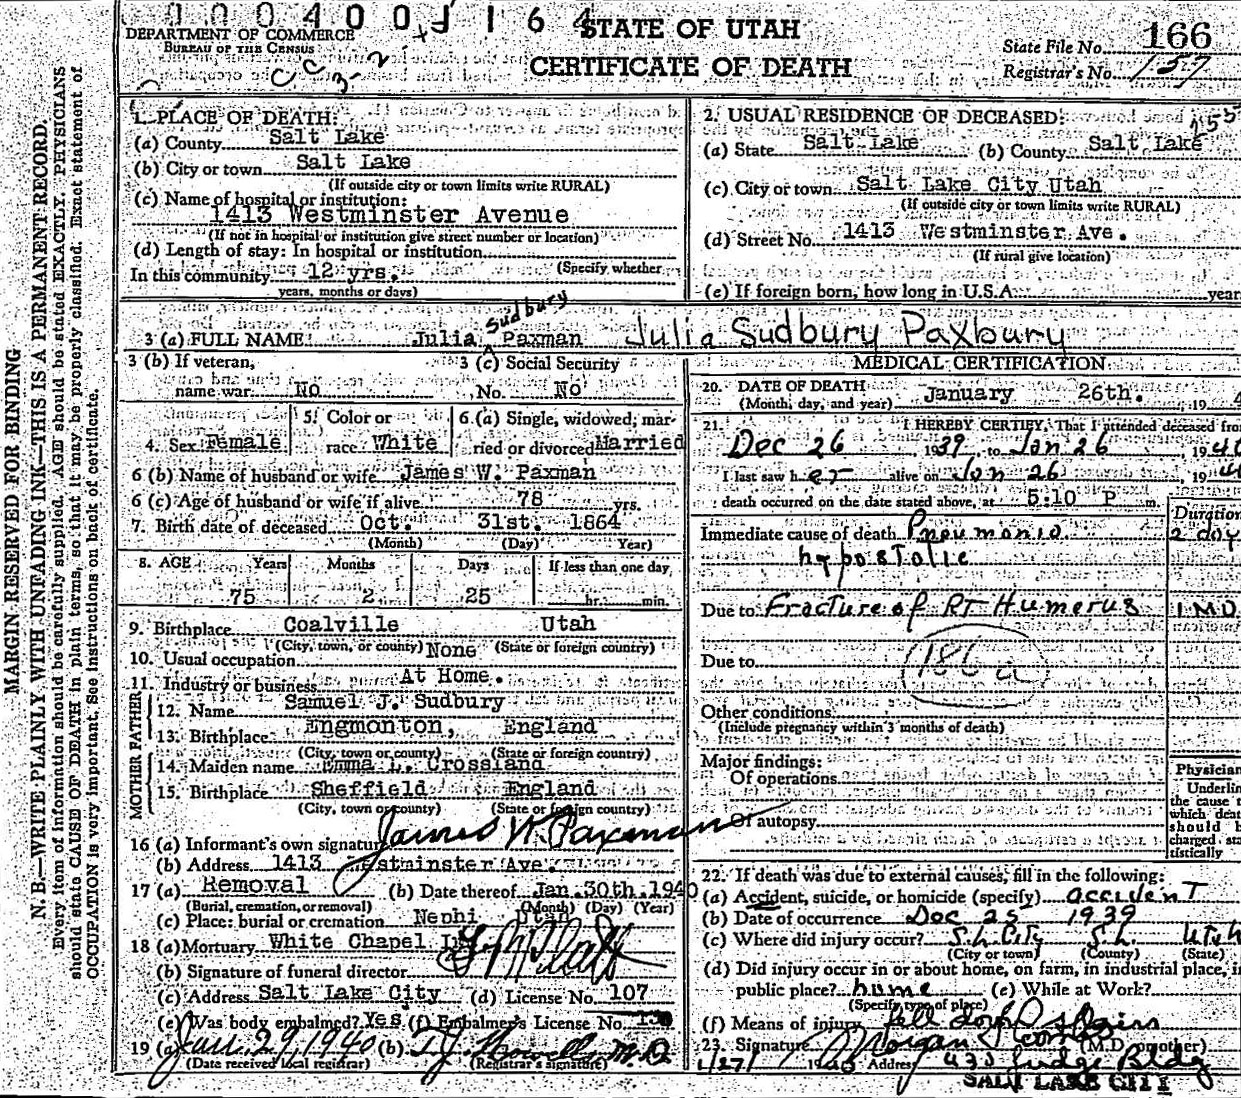 000400 164
STATE OF UTAH
CERTIFICATE OF DEATH
DEPARTMENT OF COMMERCE
BUREAU OF THE CENSUS
State File No. 166
Registrar's No. 157
MARGIN RESERVED FOR BINDING
N. B.—WRITE PLAINLY WITH UNFADING INK—THIS IS A PERMANENT RECORD.
Every item of information should be carefully supplied. AGE should be stated EXACTLY. PHYSICIANS
should state CAUSE OF DEATH in plain terms, so that it may be properly classified. Exact statement of
OCCUPATION is very important. See instructions on back of certificate.
1. PLACE OF DEATH:
(a) County Salt Lake
(b) City or town Salt Lake
(If outside city or town limits write RURAL)
(c) Name of hospital or institution:
1413 Westminster Avenue
(If not in hospital or institution give street number or location)
(d) Length of stay: In hospital or institution
(Specify whether
In this community 12 yrs.
years, months or days)
2. USUAL RESIDENCE OF DECEASED:
(a) State Salt Lake (b) County Salt Lake
(c) City or town Salt Lake City Utah
(If outside city or town limits write RURAL)
(d) Street No. 1413 Westminster Ave.
(If rural give location)
(e) If foreign born, how long in U.S.A. year
3 (a) FULL NAME Julia Sudbury Paxman Julia Sudbury Paxbury
3 (b) If veteran, name war No
3 (c) Social Security No. No
4. Sex Female
5. Color or race White
6. (a) Single, widowed, married or divorced Married
6 (b) Name of husband or wife James W. Paxman
6 (c) Age of husband or wife if alive 78 yrs.
7. Birth date of deceased Oct. 31st. 1864
(Month) (Day) (Year)
8. AGE Years Months Days If less than one day
75 2 25 hr. min.
9. Birthplace Coalville Utah
(City, town, or county) (State or foreign country)
10. Usual occupation None
11. Industry or business At Home.
FATHER
12. Name Samuel J. Sudbury
13. Birthplace Engmonton, England
(City, town or county) (State or foreign country)
MOTHER
14. Maiden name Emma L. Crossland
15. Birthplace Sheffield England
(City, town or county) (State or foreign country)
16 (a) Informant's own signature James W. Paxman
(b) Address 1413 estminster Ave.
17 (a) Removal (b) Date thereof Jan. 30th. 1940
(Burial, cremation, or removal) (Month) (Day) (Year)
(c) Place: burial or cremation Nephi Utah
18 (a) Mortuary White Chapel
(b) Signature of funeral director
(c) Address Salt Lake City (d) License No. 107
(e) Was body embalmed? Yes (f) Embalmer's License No.
19 (a) Jan. 29, 1940 (b) M.D.
(Date received local registrar) (Registrar's signature)
MEDICAL CERTIFICATION
20. DATE OF DEATH January 26th. 19 4
(Month, day, and year)
21. I HEREBY CERTIFY, That I attended deceased from
Dec 26, 1939, to Jan 26, 1940
I last saw her alive on Jan 26, 1940
death occurred on the date stated above, at 5:10 P m.
Duration
Immediate cause of death Pneumonia 2 day
hypostatic
Due to Fracture of RT Humerus 1 MO
Due to 186 a
Other conditions
(Include pregnancy within 3 months of death)
Major findings:
Of operations
Of autopsy
Physician
Underlin
the cause t
which deat
should b
charged sta
tistically
22. If death was due to external causes, fill in the following:
(a) Accident, suicide, or homicide (specify) accident
(b) Date of occurrence Dec 25 1939
(c) Where did injury occur? S.L. City S.L. Utah
(City or town) (County) (State)
(d) Did injury occur in or about home, on farm, in industrial place, in
public place? home (e) While at Work?
(Specify type of place)
(f) Means of injury fell down stairs
23. Signature (M.D. or other)
1/27/ Address Judge Bldg
SALT LAKE CITY